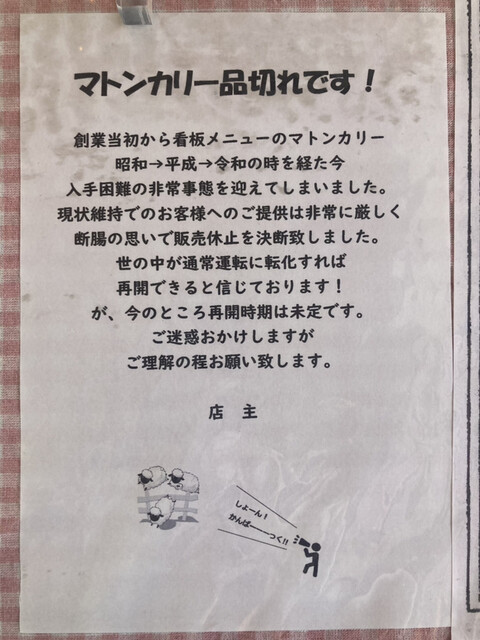 マトンカリー品切れです！
創業当初から看板メニューのマトンカリー
昭和→平成→令和の時を経た今
入手困難の非常事態を迎えてしまいました。
現状維持でのお客様へのご提供は非常に厳しく
断腸の思いで販売休止を決断致しました。
世の中が通常運転に転化すれば
再開できると信じております！
が、今のところ再開時期は未定です。
ご迷惑おかけしますが
ご理解の程お願い致します。
店　主
しょーん！
かんばーーーっく!!